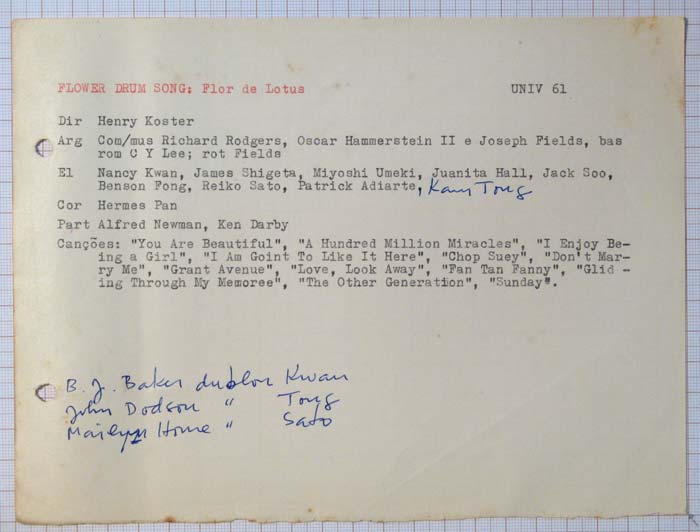 FLOWER DRUM SONG: Flor de Lotus UNIV 61
Dir Henry Koster
Arg Com/mus Richard Rodgers, Oscar Hammerstein II e Joseph Fields, bas
rom C Y Lee; rot Fields
El Nancy Kwan, James Shigeta, Miyoshi Umeki, Juanita Hall, Jack Soo,
Benson Fong, Reiko Sato, Patrick Adiarte, Kam Tong
Cor Hermes Pan
Part Alfred Newman, Ken Darby
Canções: "You Are Beautiful", "A Hundred Million Miracles", "I Enjoy Be-
ing a Girl", "I Am Goint To Like It Here", "Chop Suey", "Don't Mar-
ry Me", "Grant Avenue", "Love, Look Away", "Fan Tan Fanny", "Glid -
ing Through My Memoree", "The Other Generation", "Sunday".
B. J. Baker dublou Kwan
John Dodson " Tong
Marilyn Horne " Sato